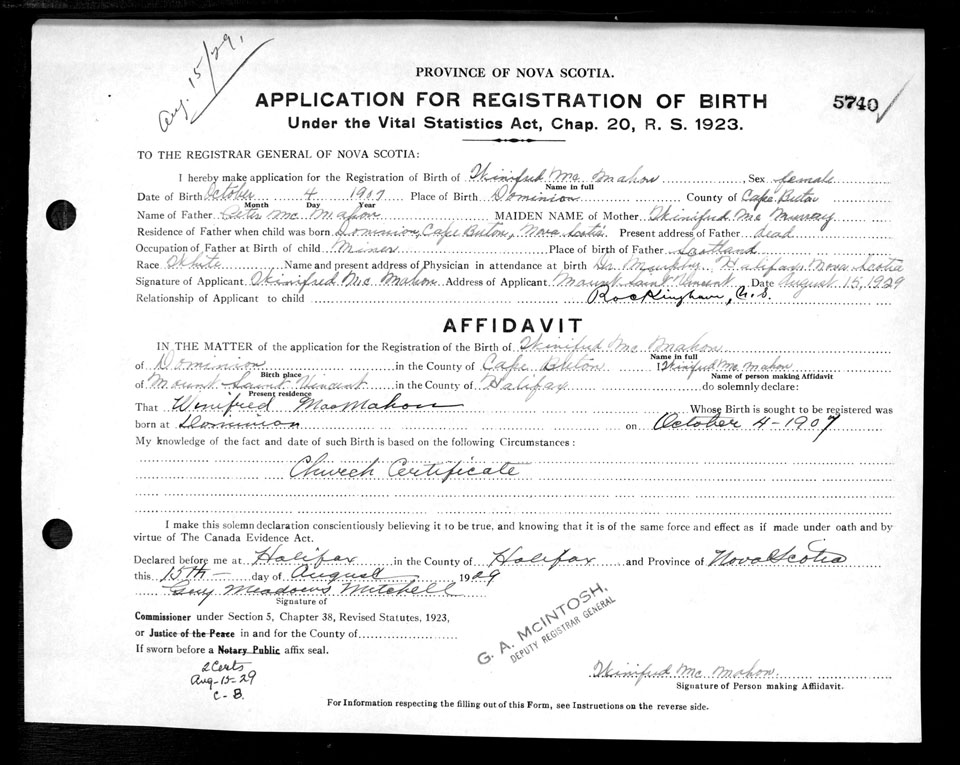 Aug. 15/29.
PROVINCE OF NOVA SCOTIA.
APPLICATION FOR REGISTRATION OF BIRTH
5740
Under the Vital Statistics Act, Chap. 20, R. S. 1923.
TO THE REGISTRAR GENERAL OF NOVA SCOTIA:
I hereby make application for the Registration of Birth of Winifred Mc Mahon, Sex female
Name in full
Date of Birth October 4 1907 Place of Birth Dominion County of Cape Breton
Month Day Year
Name of Father Peter Mc Mahon MAIDEN NAME of Mother Winifred Mc Murray
Residence of Father when child was born Dominion, Cape Breton, Nova Scotia. Present address of Father dead
Occupation of Father at Birth of child Miner Place of birth of Father Scotland
Race White Name and present address of Physician in attendance at birth Dr. Halifax Nova Scotia
Signature of Applicant Winifred Mc Mahon Address of Applicant Mount Saint Vincent Date August 15, 1929
Relationship of Applicant to child Rockingham, N.S.
AFFIDAVIT
IN THE MATTER of the application for the Registration of the Birth of Winifred Mc Mahon
Name in full
of Dominion in the County of Cape Breton I Winifred Mc Mahon
Birth place Name of person making Affidavit
of Mount Saint Vincent in the County of Halifax do solemnly declare:
Present residence
That Winifred MacMahon Whose Birth is sought to be registered was
born at Dominion on October 4-1907
My knowledge of the fact and date of such Birth is based on the following Circumstances:
Church Certificate
I make this solemn declaration conscientiously believing it to be true, and knowing that it is of the same force and effect as if made under oath and by
virtue of The Canada Evidence Act.
Declared before me at Halifax in the County of Halifax and Province of Nova Scotia
this 15th day of August 1929
Guy Meadows Mitchell
Signature of
Commissioner under Section 5, Chapter 38, Revised Statutes, 1923,
or Justice of the Peace in and for the County of
If sworn before a Notary Public affix seal.
G. A. McINTOSH,
DEPUTY REGISTRAR GENERAL
2 Certs
Aug-15-29
C-B.
Winifred Mc Mahon.
Signature of Person making Affidavit.
For Information respecting the filling out of this Form, see Instructions on the reverse side.